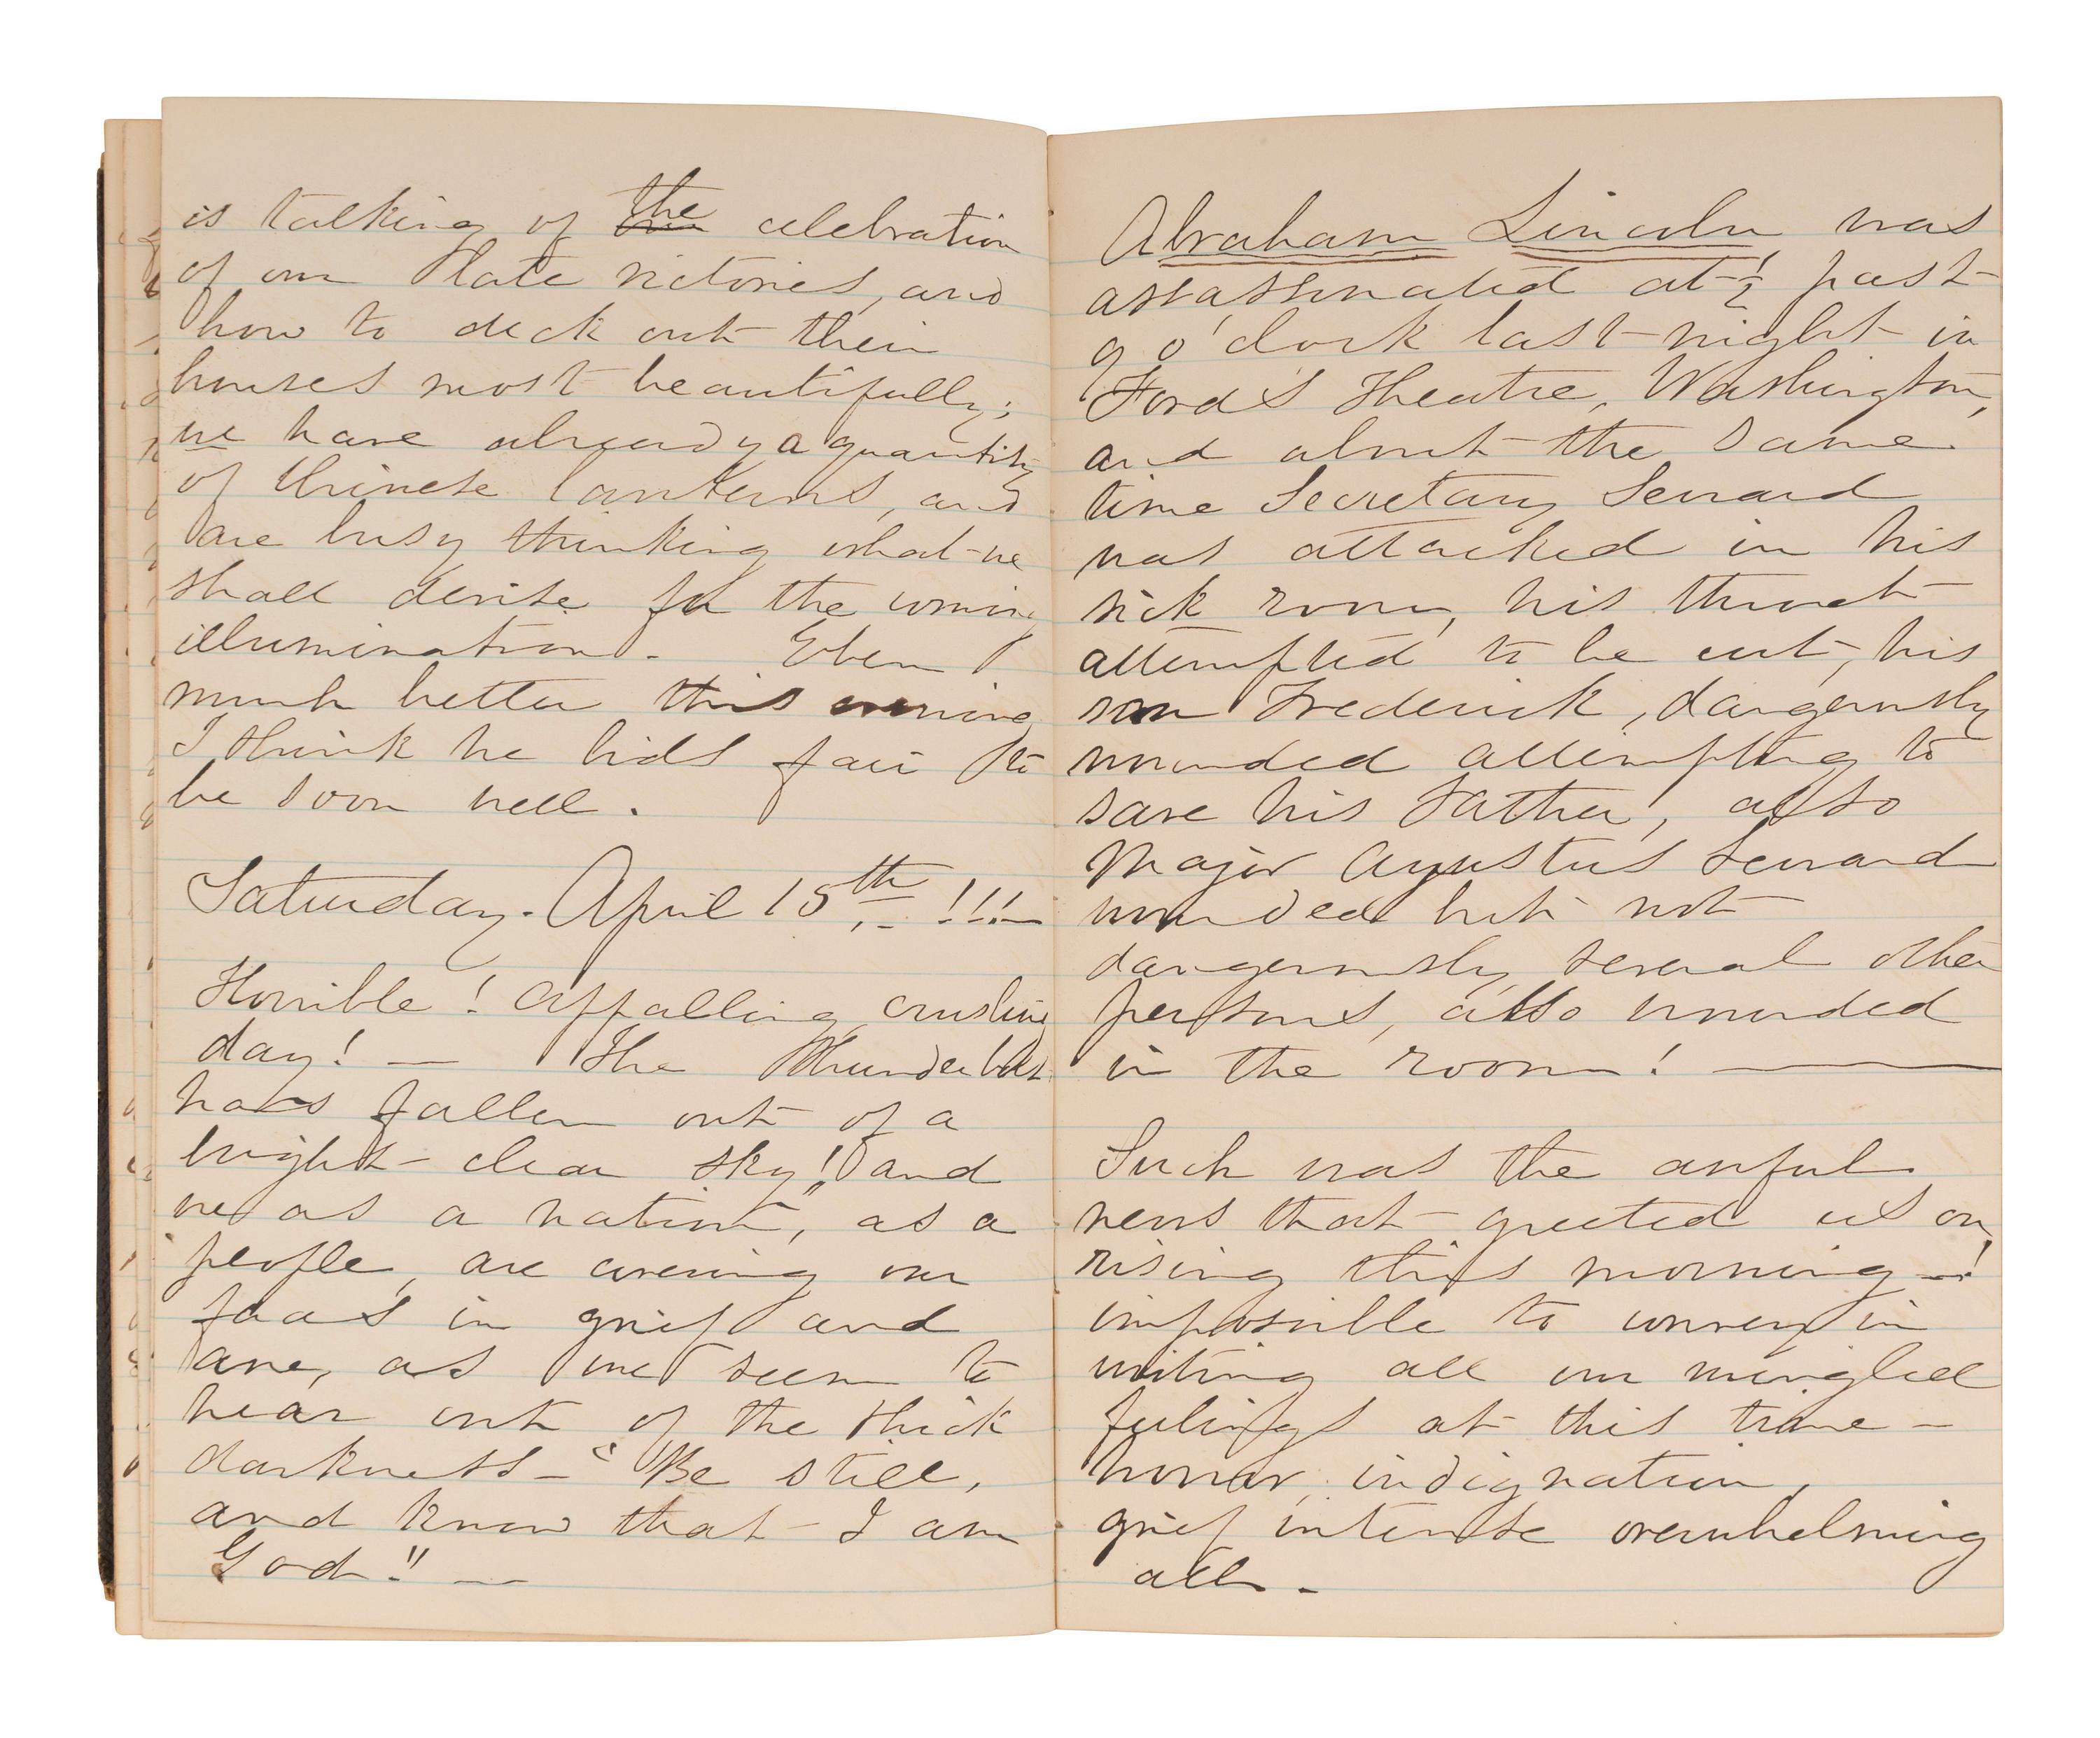 is talking of the celebration
of our late victories, and
how to deck out their
houses most beautifully;
we have already a quantity
of Chinese lanterns, and
are busy thinking what we
shall devise for the coming
illumination. Eben
much better this evening
I think he bids fair to
be soon well.
Saturday. April 15th. !!!—
Horrible! Appalling crushing
day! — The Thunderbolt
has fallen out of a
bright clear sky! and
we as a nation, as a
people, are covering our
faces in grief and
awe, as we seem to
hear out of the thick
darkness — "Be still,
and know that I am
God!! —
Abraham Lincoln was
assassinated at ½ past
9 o'clock last night in
Ford's Theatre, Washington,
and about the same
time Secretary Seward
was attacked in his
sick room, his throat
attempted to be cut, his
son Frederick, dangerously
wounded attempting to
save his father, also
Major Agustus Seward
wounded but not
dangerously, several other
persons, also wounded
in the room! —
Such was the awful
news that greeted us on
rising this morning —!
impossible to convey in
writing all our mingled
feelings at this time —
horror, indignation,
grief intense overwhelming
all. -